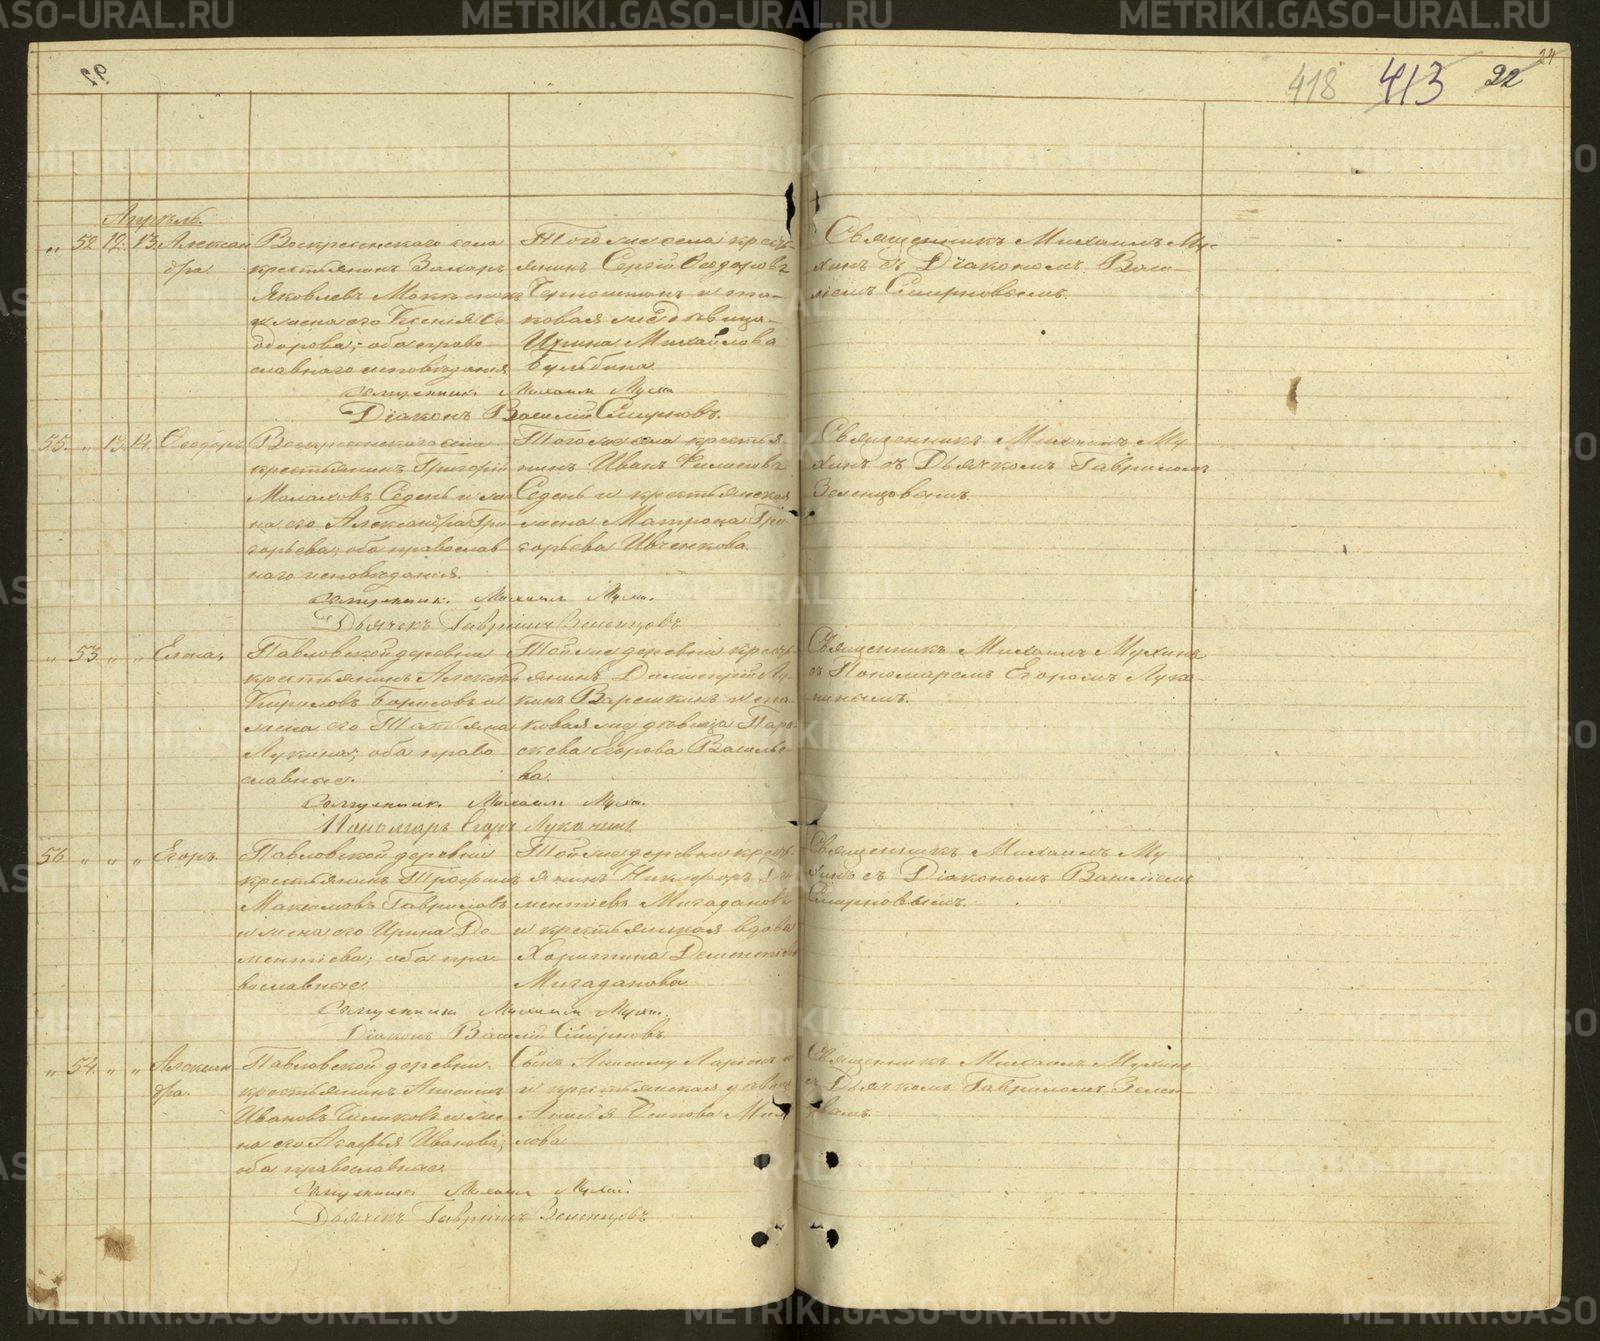 418 413 22 24
Апрѣль.
„ 52 12. 13. Алексан
дра
Воскресенскаго села
крестьянинъ Захаръ
Яковлевъ
жена его Ксенія Ѳе
дорова; оба право
славнаго исповѣданія
Того же села кресть
янинъ Сергій Ѳеодоровъ
и та
ковая же дѣвица
Ирина Михайлова
Священникъ Михаилъ Му
Діаконъ Василій Смирновъ.
Священникъ Михаилъ Му
хинъ съ Діакономъ Васи
ліемъ Смирновымъ.
55. „ 13. 14. Ѳеодоръ
Воскресенскаго села
крестьянинъ Григорій
Малаховъ Седень и же
на его Александра Гри
горьева; оба православ
наго исповѣданія.
Того же села крестья
нинъ Иванъ Филиповъ
Седень и крестьянская
жена Матрона Гри
горьева Ивченкова.
Священник. Михаилъ Мухи.
Дьячекъ Гавріилъ Зеленцовъ
Священникъ Михаилъ Му
хинъ съ Дьячкомъ Гавріиломъ
Зеленцовымъ
„ 53. „ „ Елена,
Павловской деревни
крестьянинъ Алексѣй
Кириловъ Борисовъ и
жена его Татьяна
Лукина; оба право
славные.
Той же деревни кресть
янинъ Димитрій Лу
кинъ Варешкинъ и та
ковая же дѣвица Пара
скева Егорова Василье
ва.
Священник. Михаилъ Мухи.
Пономарь Егоръ Луканинъ
Священникъ Михаилъ Мухинъ
съ Пономаремъ Егоромъ Лука
нинымъ.
56. „ „ „ Егоръ.
Павловской деревни
крестьянинъ Трофимъ
Максимовъ Гавриловъ
и жена его Ирина Де
ментіева; оба пра
вославные.
Той же деревни кресть
янинъ Никифоръ Де
ментіевъ Мигадановъ
и крестьянская вдова
Харитина Дементіева
Мигаданова
Священникъ Михаилъ Мухи.
Діаконъ Василій Смирновъ
Священникъ Михаилъ Му
хинъ съ Діакономъ Василіемъ
Смирновымъ.
„ 54. „ „ Алексан
дра.
Павловской деревни.
крестьянинъ Анисимъ
Ивановъ и же
на его Агафья Иванова;
оба православные.
Сынъ Анисиму Ларіонъ
и крестьянская дѣвица
Осипова
лова
Священникъ Михаилъ Мухи.
Дьячекъ Гавріилъ Зеленцовъ
Священникъ Михаилъ Мухинъ
съ Дьячкомъ Гавріиломъ Зелен
цовымъ.
METRIKI.GASO-URAL.RU